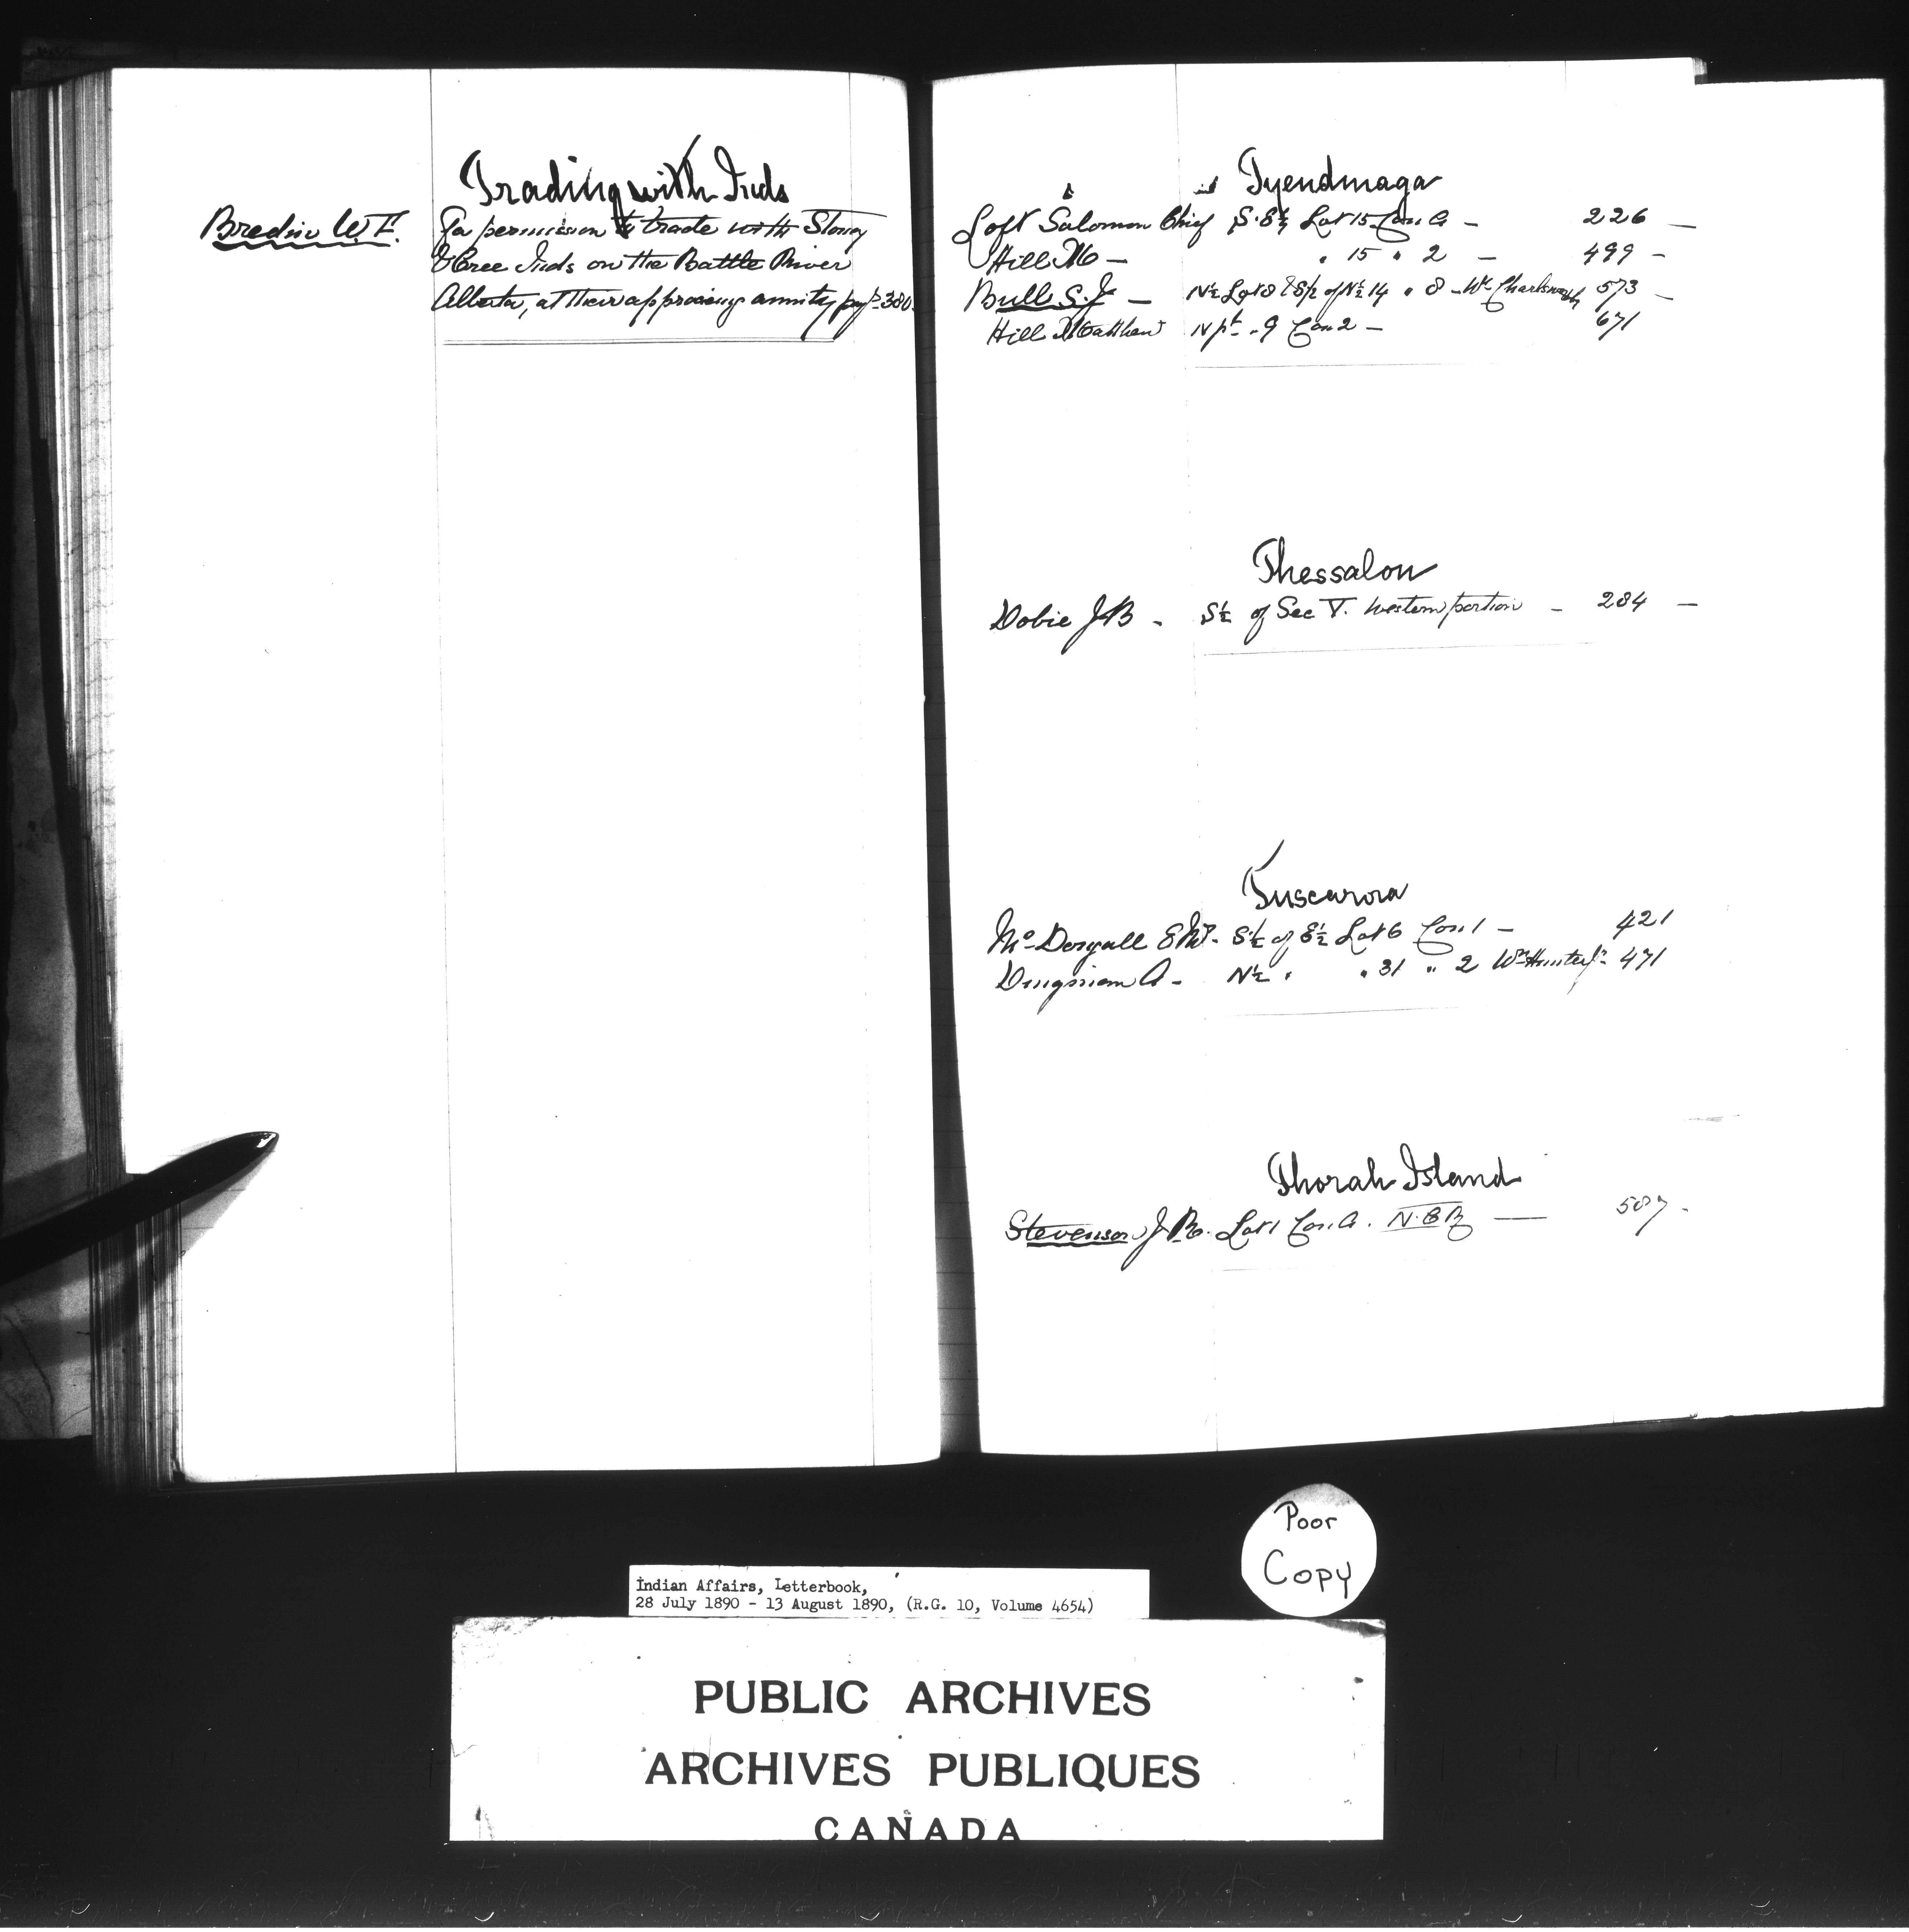 Trading with Inds
Bredin W.F. Ga permission to trade with Stoney
& Cree Inds on the Battle River
Alberta, at their approaching annuity paymt 380
Tyendinaga
Loft Solomon Chief S. E½ Lot 15 Con. A - 226 -
Hill M - " 15 " 2 - 499 -
Bull S. J - N½ Lot 8 & S½ of N½ 14 " 8 - Wm Charlesworth 573 -
Hill Matthew N pt. 9 Con 2 - 671
Thessalon
Dobie J B - S½ of Sec V. Western portion - 284 -
Tuscarora
McDougall - S½ of E½ Lot 6 Con 1 - 421
Dingman A - N½ " " 31 " 2 Wm Hunter 471
Thorah Island
Stevenson J. R. Lot 1 Con. A. N. E B — 507 -
Poor
Copy
Indian Affairs, Letterbook,
28 July 1890 - 13 August 1890, (R.G. 10, Volume 4654)
PUBLIC ARCHIVES
ARCHIVES PUBLIQUES
CANADA